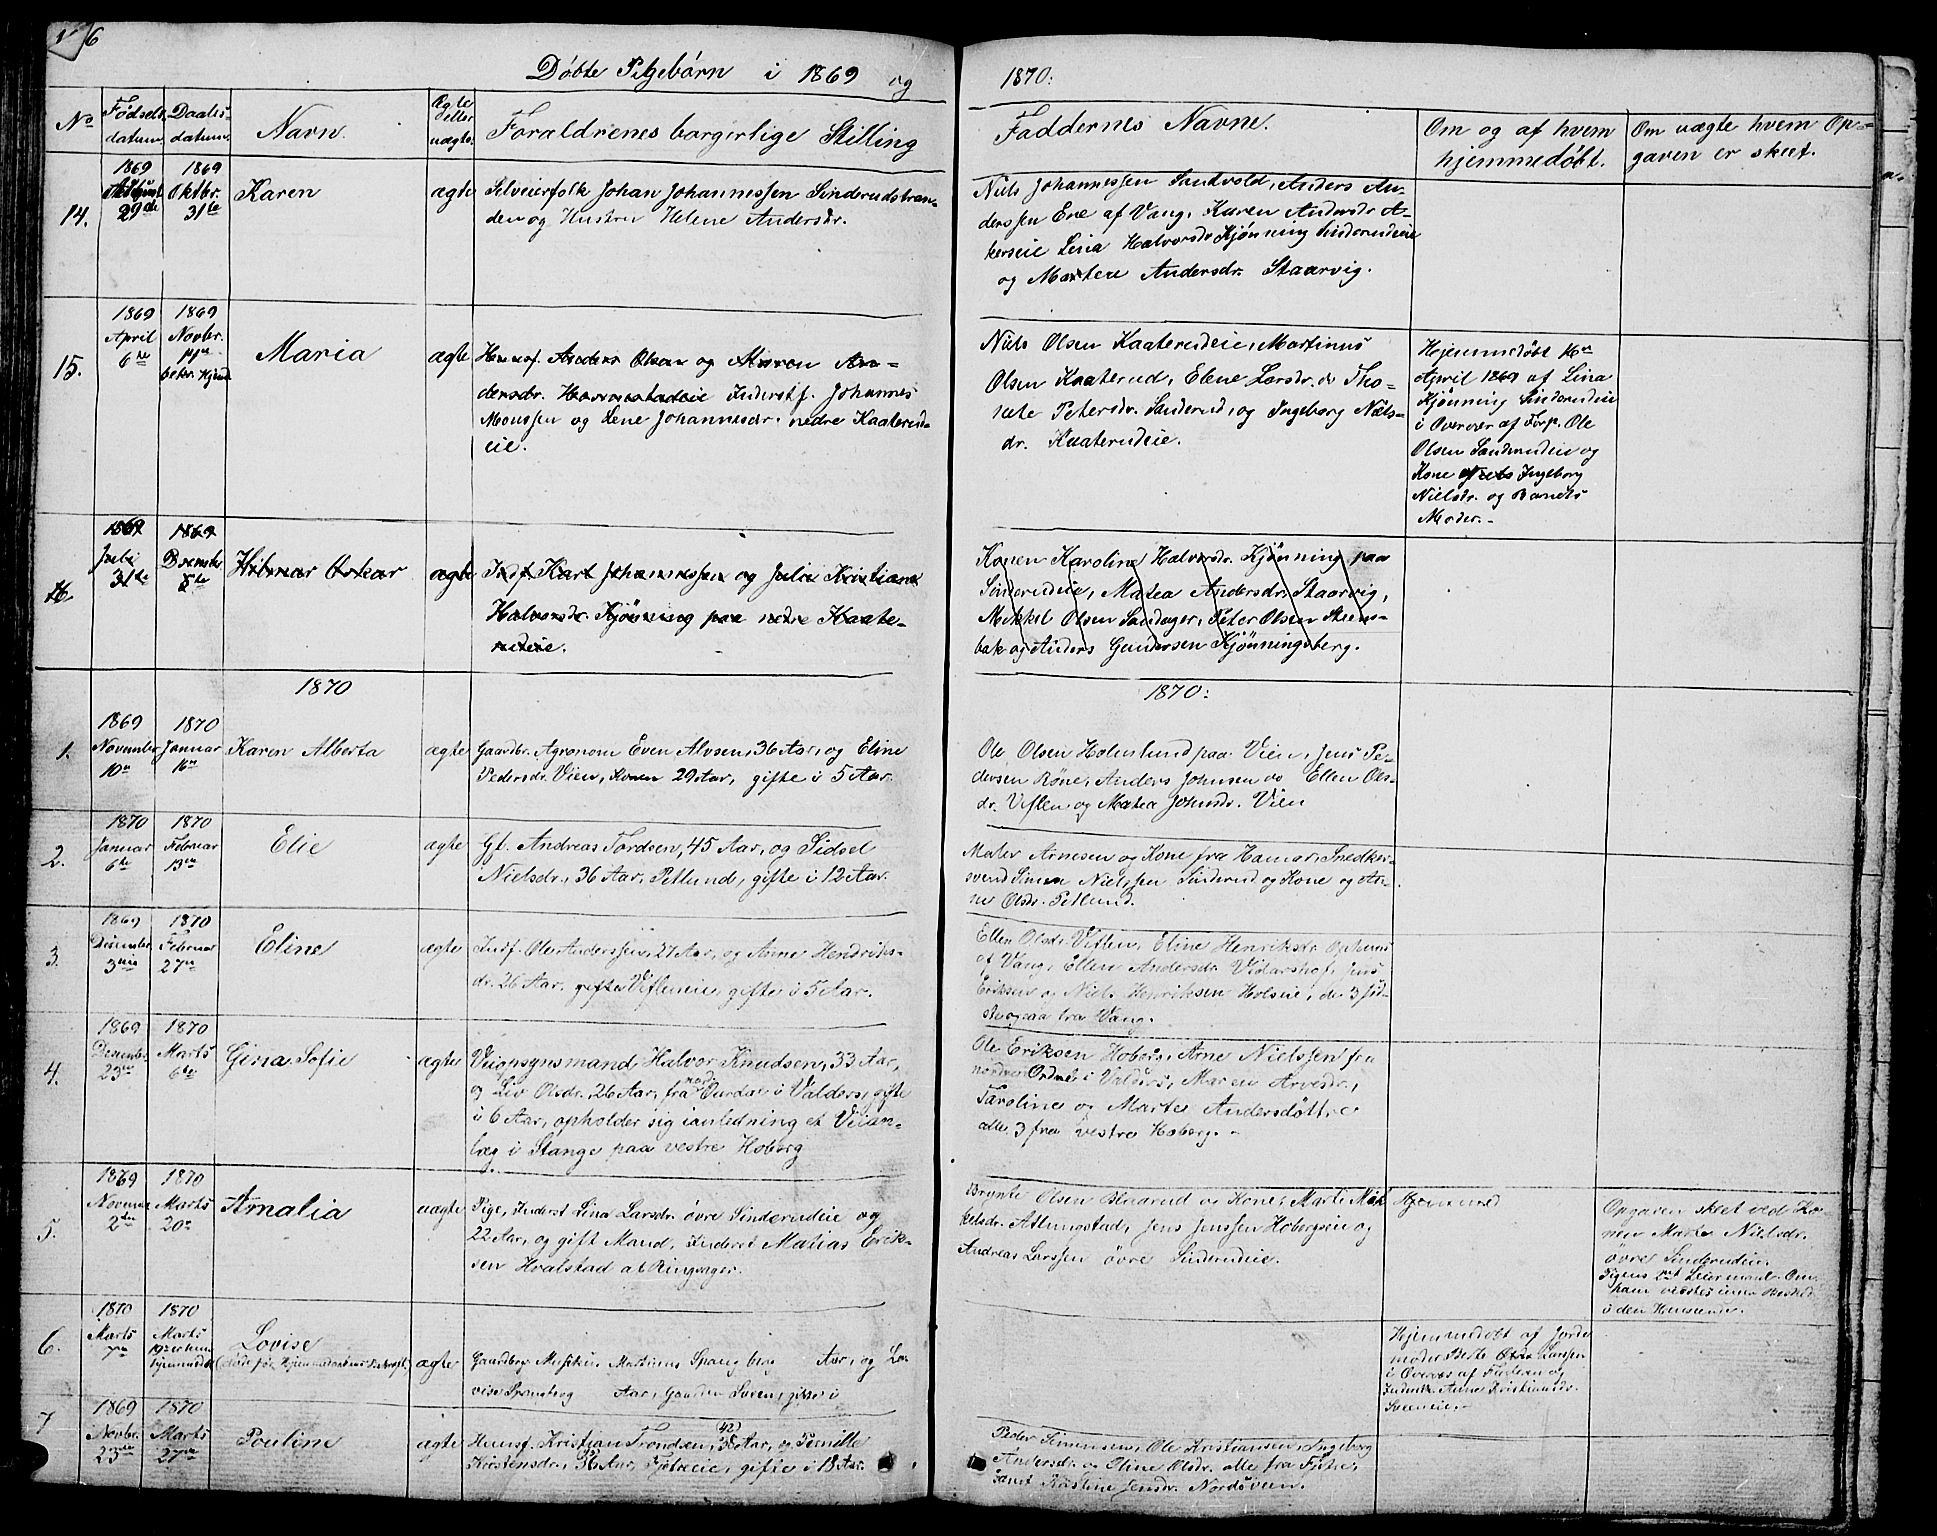 6
Döbte Pigebörn i 1869 og
1870:
No
Födsels
datum
Daabs
datum
Navn
Ægte
eller
uægte
Forældrenes borgerlige Stilling
Faddernes Navne.
Om og af hvem
hjemmedöbt.
Om uægte hvem Op-
gaven er skeet.
14.
1869
29de
1869
Oktbr.
31te
Karen
ægte
Selveierfolk Johan Johannessen Sinderudstran-
den og Hustru Helene Andersdr.
Niels Johannessen Sandvold, Anders An-
derssen Ene af Vang, Karen Andersdr A-
kerseie Lina Halvorsdr Kjönning Sinderudeie
og Martea Andersdr. Staarvig.
15.
1869
April
6te
1869
Novbr.
Maria
ægte
Huusf. Anders Olsen og Karen An-
dersdr. Inderstf. Johannes
Monssen og Lene Johannesdr. nedre Kaaterud-
eie.
Niels Olsen Kaaterudeie, Martinus
Olsen Kaaterud, Elene Larsdr. do Tho-
nete Petersdr. Sanderud, og Ingeborg Niels-
dr. Kaaterudeie.
Hejemmedöbt 16en
April 1869 af Lina
Kjönning Sinderudeie
i Overvær af Förp. Ole
Olsen Sanderudeie og
Kone Ingeborg
Nielsdr. og Barnets
Moder.-
16.
1869
Juli
31te
1869
Dsember
8de
Hilmar Oskar
ægte
Indf. Karl Johannessen og Julie Kristiane
Halvorsdr. Kjönning paa nedre Kaate-
rudeie.
Konen Karoline Halvorsdr. Kjönning paa
Sinderudeie, Matea Andersdr. Staarvig,
Mikkel Olsen Sandager, Peter Olsen Steens-
bak og Anders Gundersen Kjönningsberg.
1870
1870:
1.
1869
November
10n
1870
Januar
16n
Karen Alberta
ægte
Gaardbr. Agronom Even Alvsen, 36 Aar, og Eline
Pedersdr. Vien, Konen 29 Aar, gifte i 5 Aar.
Ole Olsen Holmlund paa Vien, Jens Pe-
dersen Röne, Anders Johnsen og Ellen Ols-
dr. Viflen og Matea Johnsdr. Vien
2.
1870
Januar
6te
1870
Februar
13en
Elie
ægte
Gf. Andreas Tordsen, 45 Aar, og Sidsel
Nielsdr., 36 Aar, Petlund, gifte i 12 Aar.
Maler Arnesen og Kone fra Hamar, Snedker-
svend Simen Nielssen Sinderud og Kone og An-
ne Olsdr. Petlund.
3.
1869
Desember
3die
1870
Februar
27n
Eline
ægte
Indf. Ole Anderssen, 27 Aar, og Anne Hendriks-
dr. 26 Aar, Vifleneie, gifte i 5 Aar.
Ellen Olsdr. Viflen, Eline Henriksdr. Ophuus
af Vang, Ellen Andersdr Vidarshof, Jens
Eriksen og Niels Henriksen Holseie, de 3 sid-
ste ogsaa fra Vang.
4.
1869
Desember
23en
1870
Marts
6te
Gina Sofie
ægte
Veiopsynsmand Halvor Knudsen, 33 Aar,
og Liv Olsdr., 26 Aar, fra nord Aurdal i Valders, gifte
i 6 Aar, opholder sig i anledning et Veian-
læg i Stange paa vestre Hoberg
Ole Eriksen Hoberg, Arne Nielssen fra
nordre Ordal i Valders, Maren Arvesdr.,
Karoline og Martea Andersdöttre
alle 3 fra vestre Hoberg.-
5.
1869
November
2den
1870
Marts
20e
Amalia
uægte
Pige, Inderst Lina Larsdr. övre Sinderudeie og
22 Aar, og gift Mand, Inderst Matias Erik-
sen Hvalstad at Ringsager.
Brynte Olsen Blaarud og Kone, Marte Mik-
kelsdr. Atlungstad, Jens Jenssen Hobergseie og
Andreas Larssen övre Sinderudeie.
Opgaven skeet ved Ko-
nen Marte Nielsdr.
övre Sinderudeie.
Pigens 2det Leiermaal. Om
ham vidstes inn Besked
i den Henseende.
6.
1870
Marts
7n
1870
Marts
Lovise
ægte
Gaardbrg Musiker Martinus Spangberg Aar, og Lo-
vise Spangberg Aar, Gaarden Sveen, gifte i
Hejemmedöbt af Jorde
moder Larssen
i Overvær af
Anne Kristiansdr.
7
1869
Novbr.
23de
1870
Marts
27n
Pouline
ægte
Huusf. Kristian Trondsen, 42 Aar, og Pernille
Kristensdr., 36 Aar, gifte i 18 Aar.
Peder Simensen, Ole Kristiansen, Ingeborg
Andersdr. og Oline Olsdr. alle fra
samt Kristine Jensdr. Nordsveen.